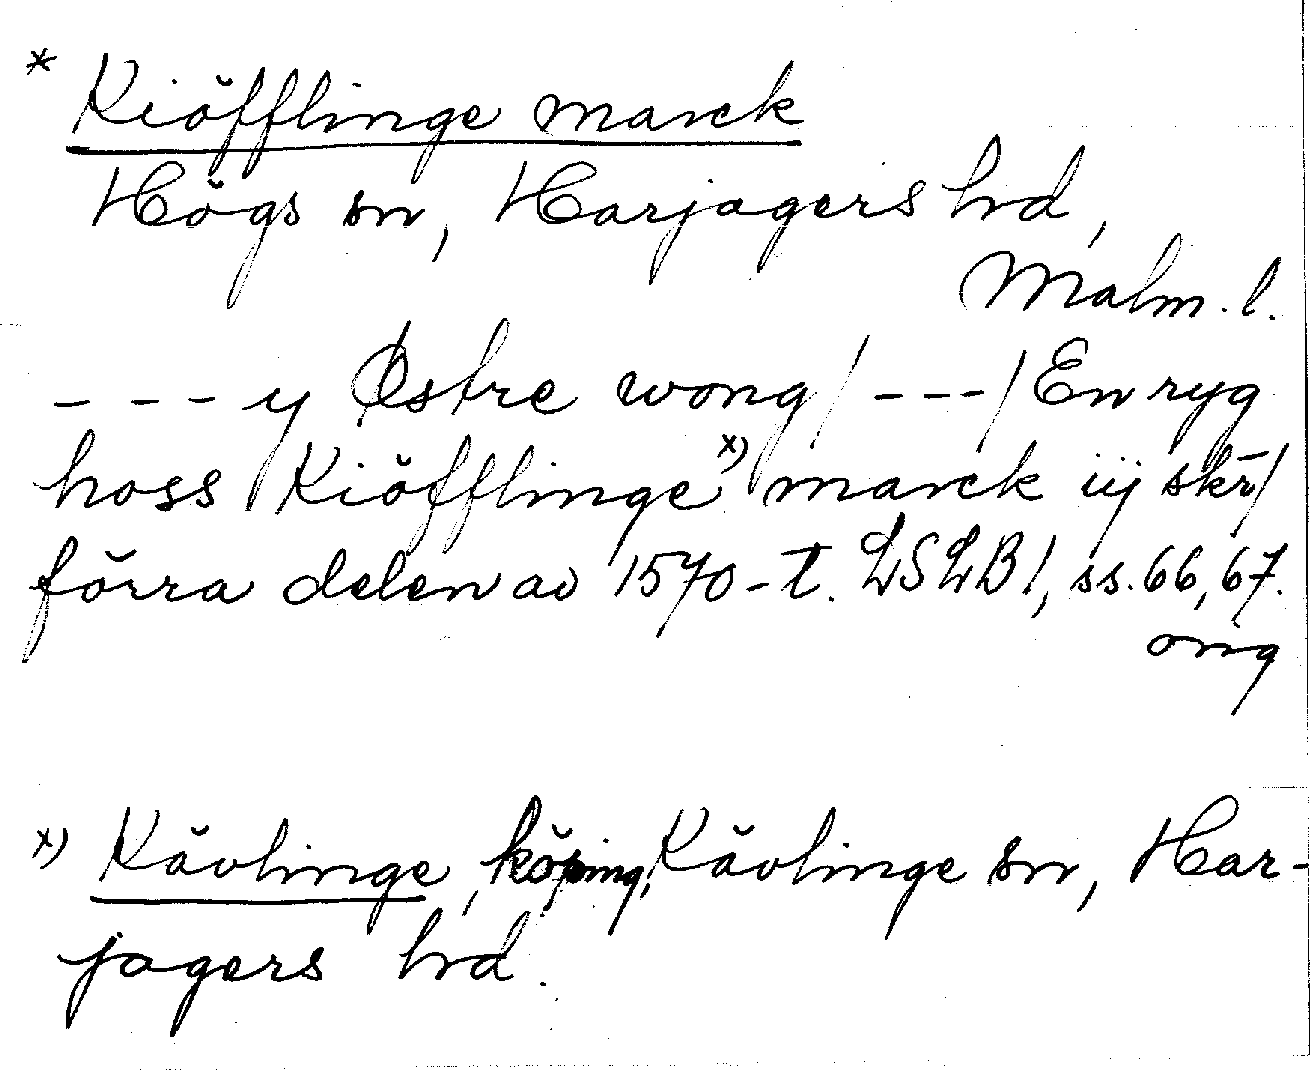 * Kiöfflinge marck
Högs sn, Harjagers hd,
Malm. l.
--- y Østre wong/ ---/ En ryg
hoss Kiöfflinge x) marck iij skr̄/
förra delen av 1570-t. LSLB 1, ss. 66, 67.
orig
x) Kävlinge, köping, Kävlinge sn, Har-
jagers hd.